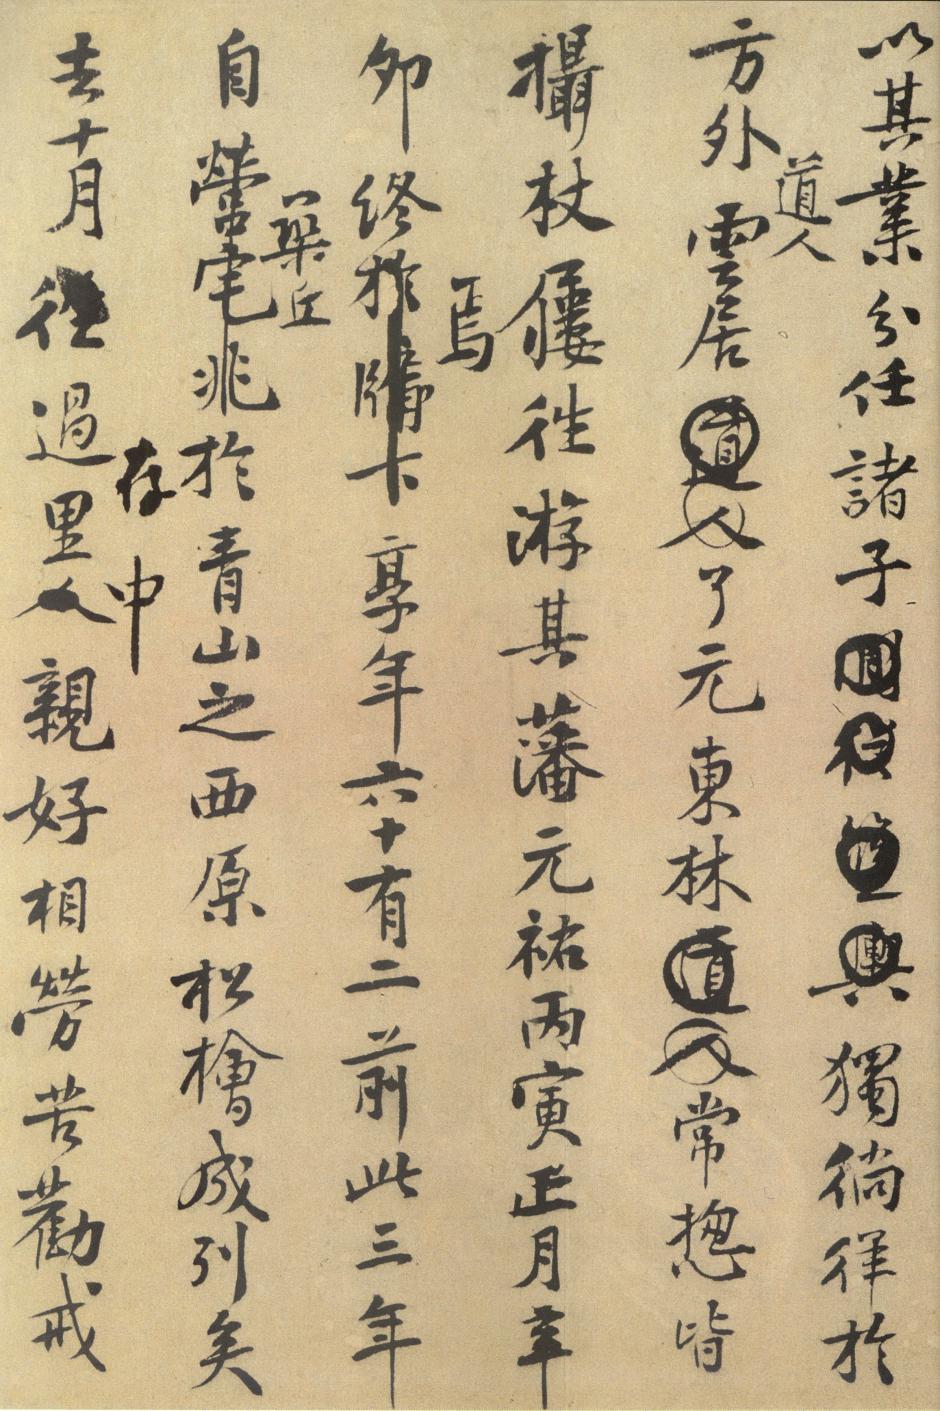 以其業分任諸子獨徜徉於
道人
方外雲居道人了元東林道人常揔皆
攝杖屨往游其藩元祐丙寅正月辛
焉
卯終於牖下享年六十有二前此三年
丘
自營兆於青山之西原松檜成列矣
存中
去十月往過里人親好相勞苦勸戒